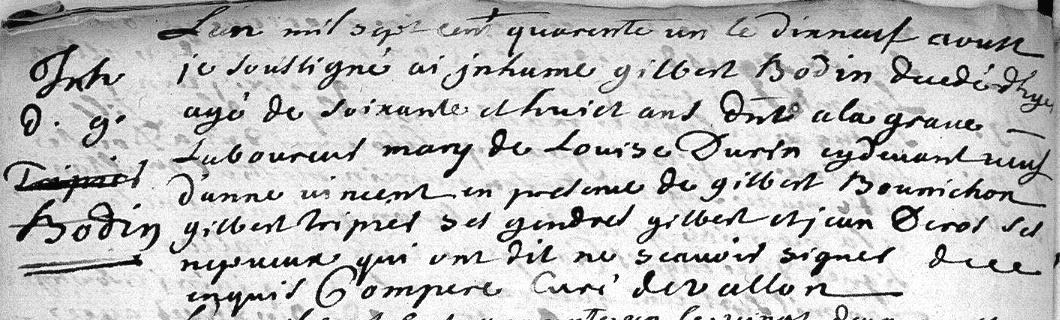 L'an mil sept cent quarente un le dixneuf aoust
je soussigné ai jnhumé gilbert Bodin decedé d'hyer
agé de soixante et huict ans dnt a la graue
Laboureur mary de Louise Durin cydeuant ueuf
d'anne uincent en presence de gilbert Bounichon
gilbert tripies ses gendres gilbert et jean Deros ses
nepueux qui ont dit ne scauoir signer de ce
enquis Compere Curé de uallon
Inh
d. g.
Tripier
Bodin